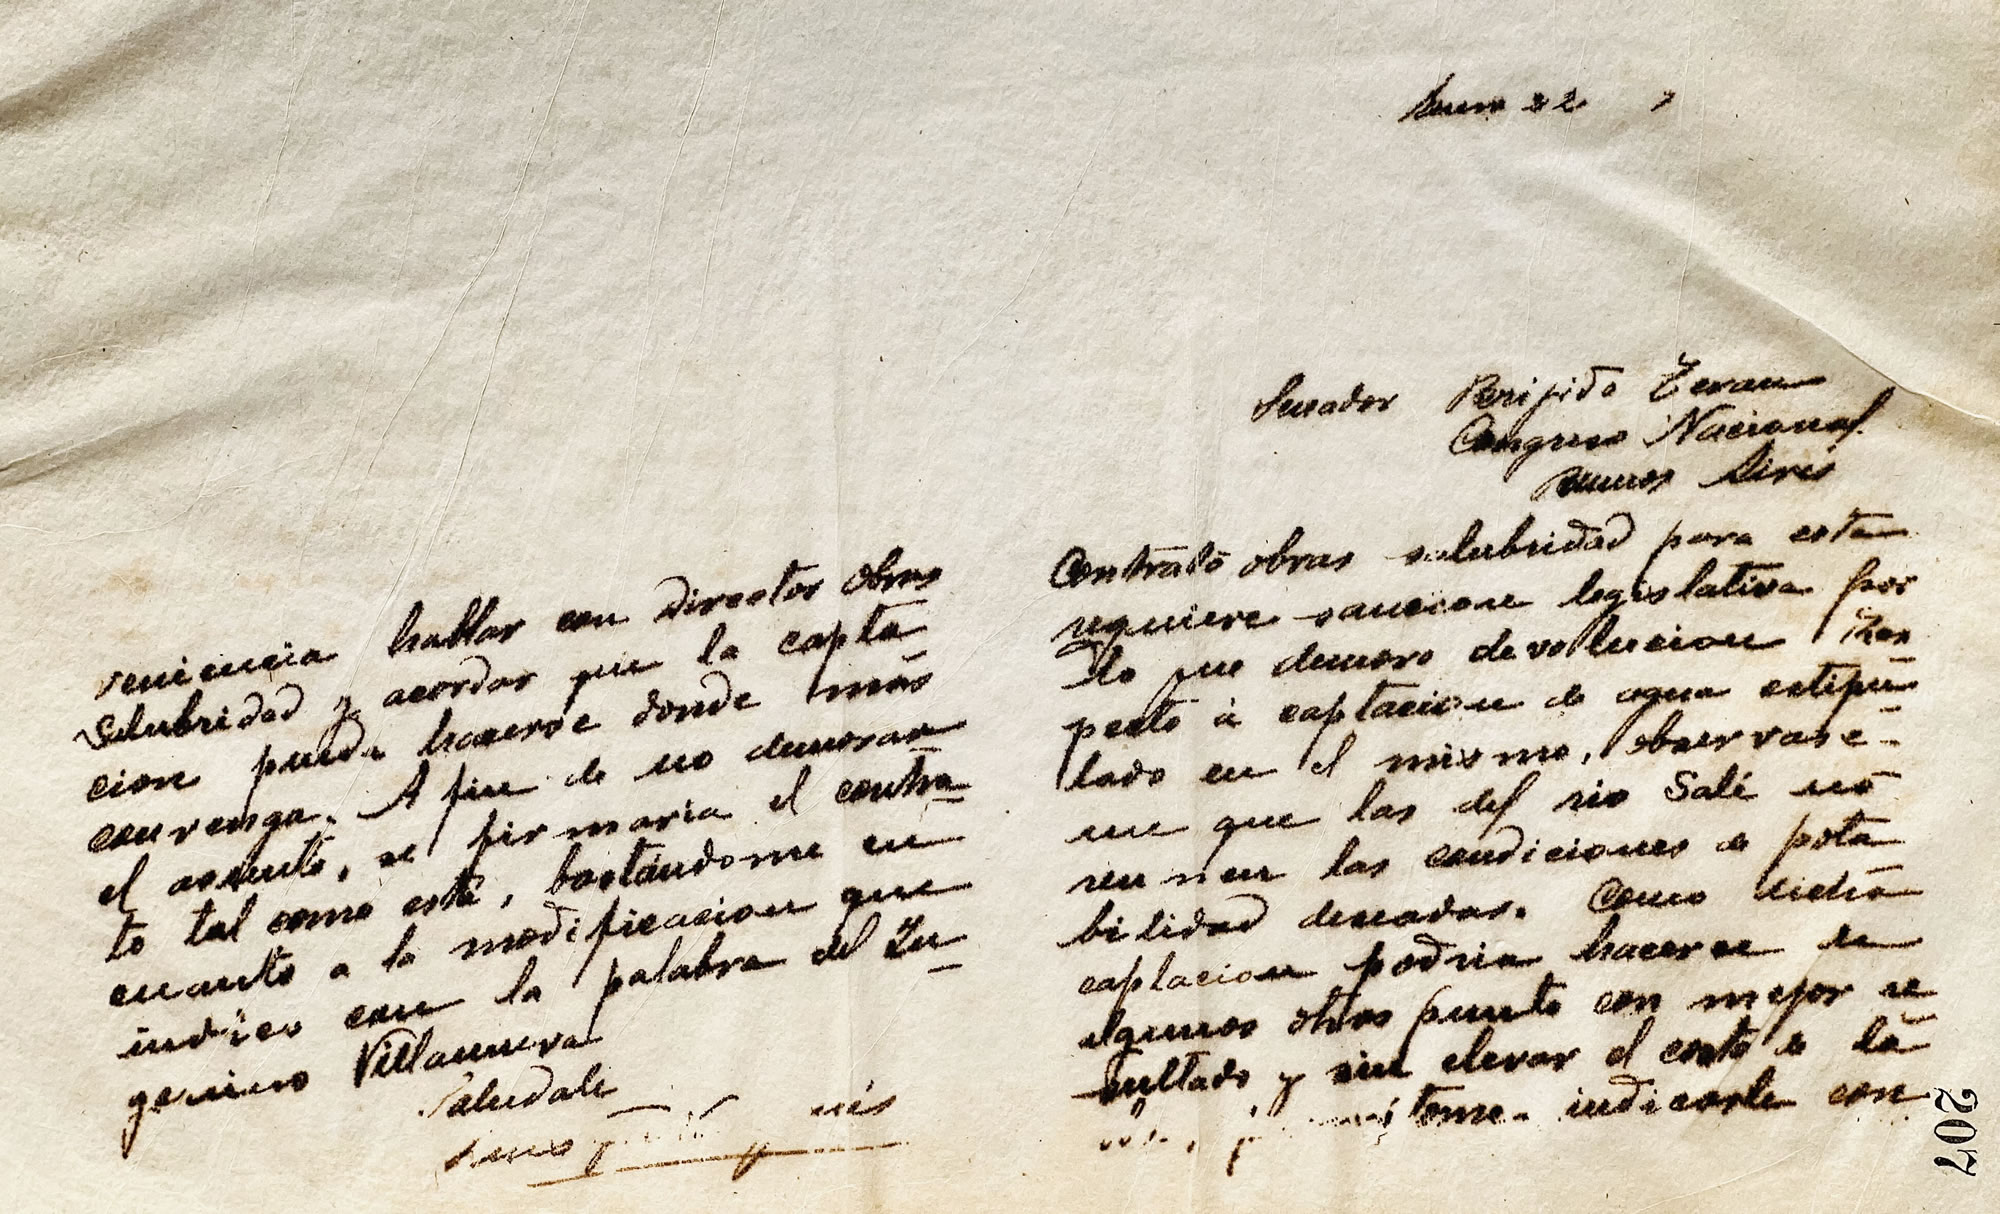 Enero 22
Senador Brijido Teran
Congreso Nacional.
Buenos Aires
Contrato obras salubridad para esta
requiere sancion legislativa por
lo que demoro devolucion. Res
pecto á captacion de agua estipu-
lado en el mismo, observase-
me que las del rio Salí no
reunen las condiciones de pota
bilidad deseadas. Como dicha
captacion podria hacerse en
algunos otros punto con mejor re
sultado y sin elevar el costo de la
tome indicarle con
veniencia hablar con director obras
Salubridad y acordar que la capta-
cion pueda hacerse donde más
convenga. A fin de no demorar
el asunto, se firmaria el contra-
to tal como está, bastándome en
cuanto a la modificacion que
indico con la palabra del In-
geniero Villanueva
Saludale
207